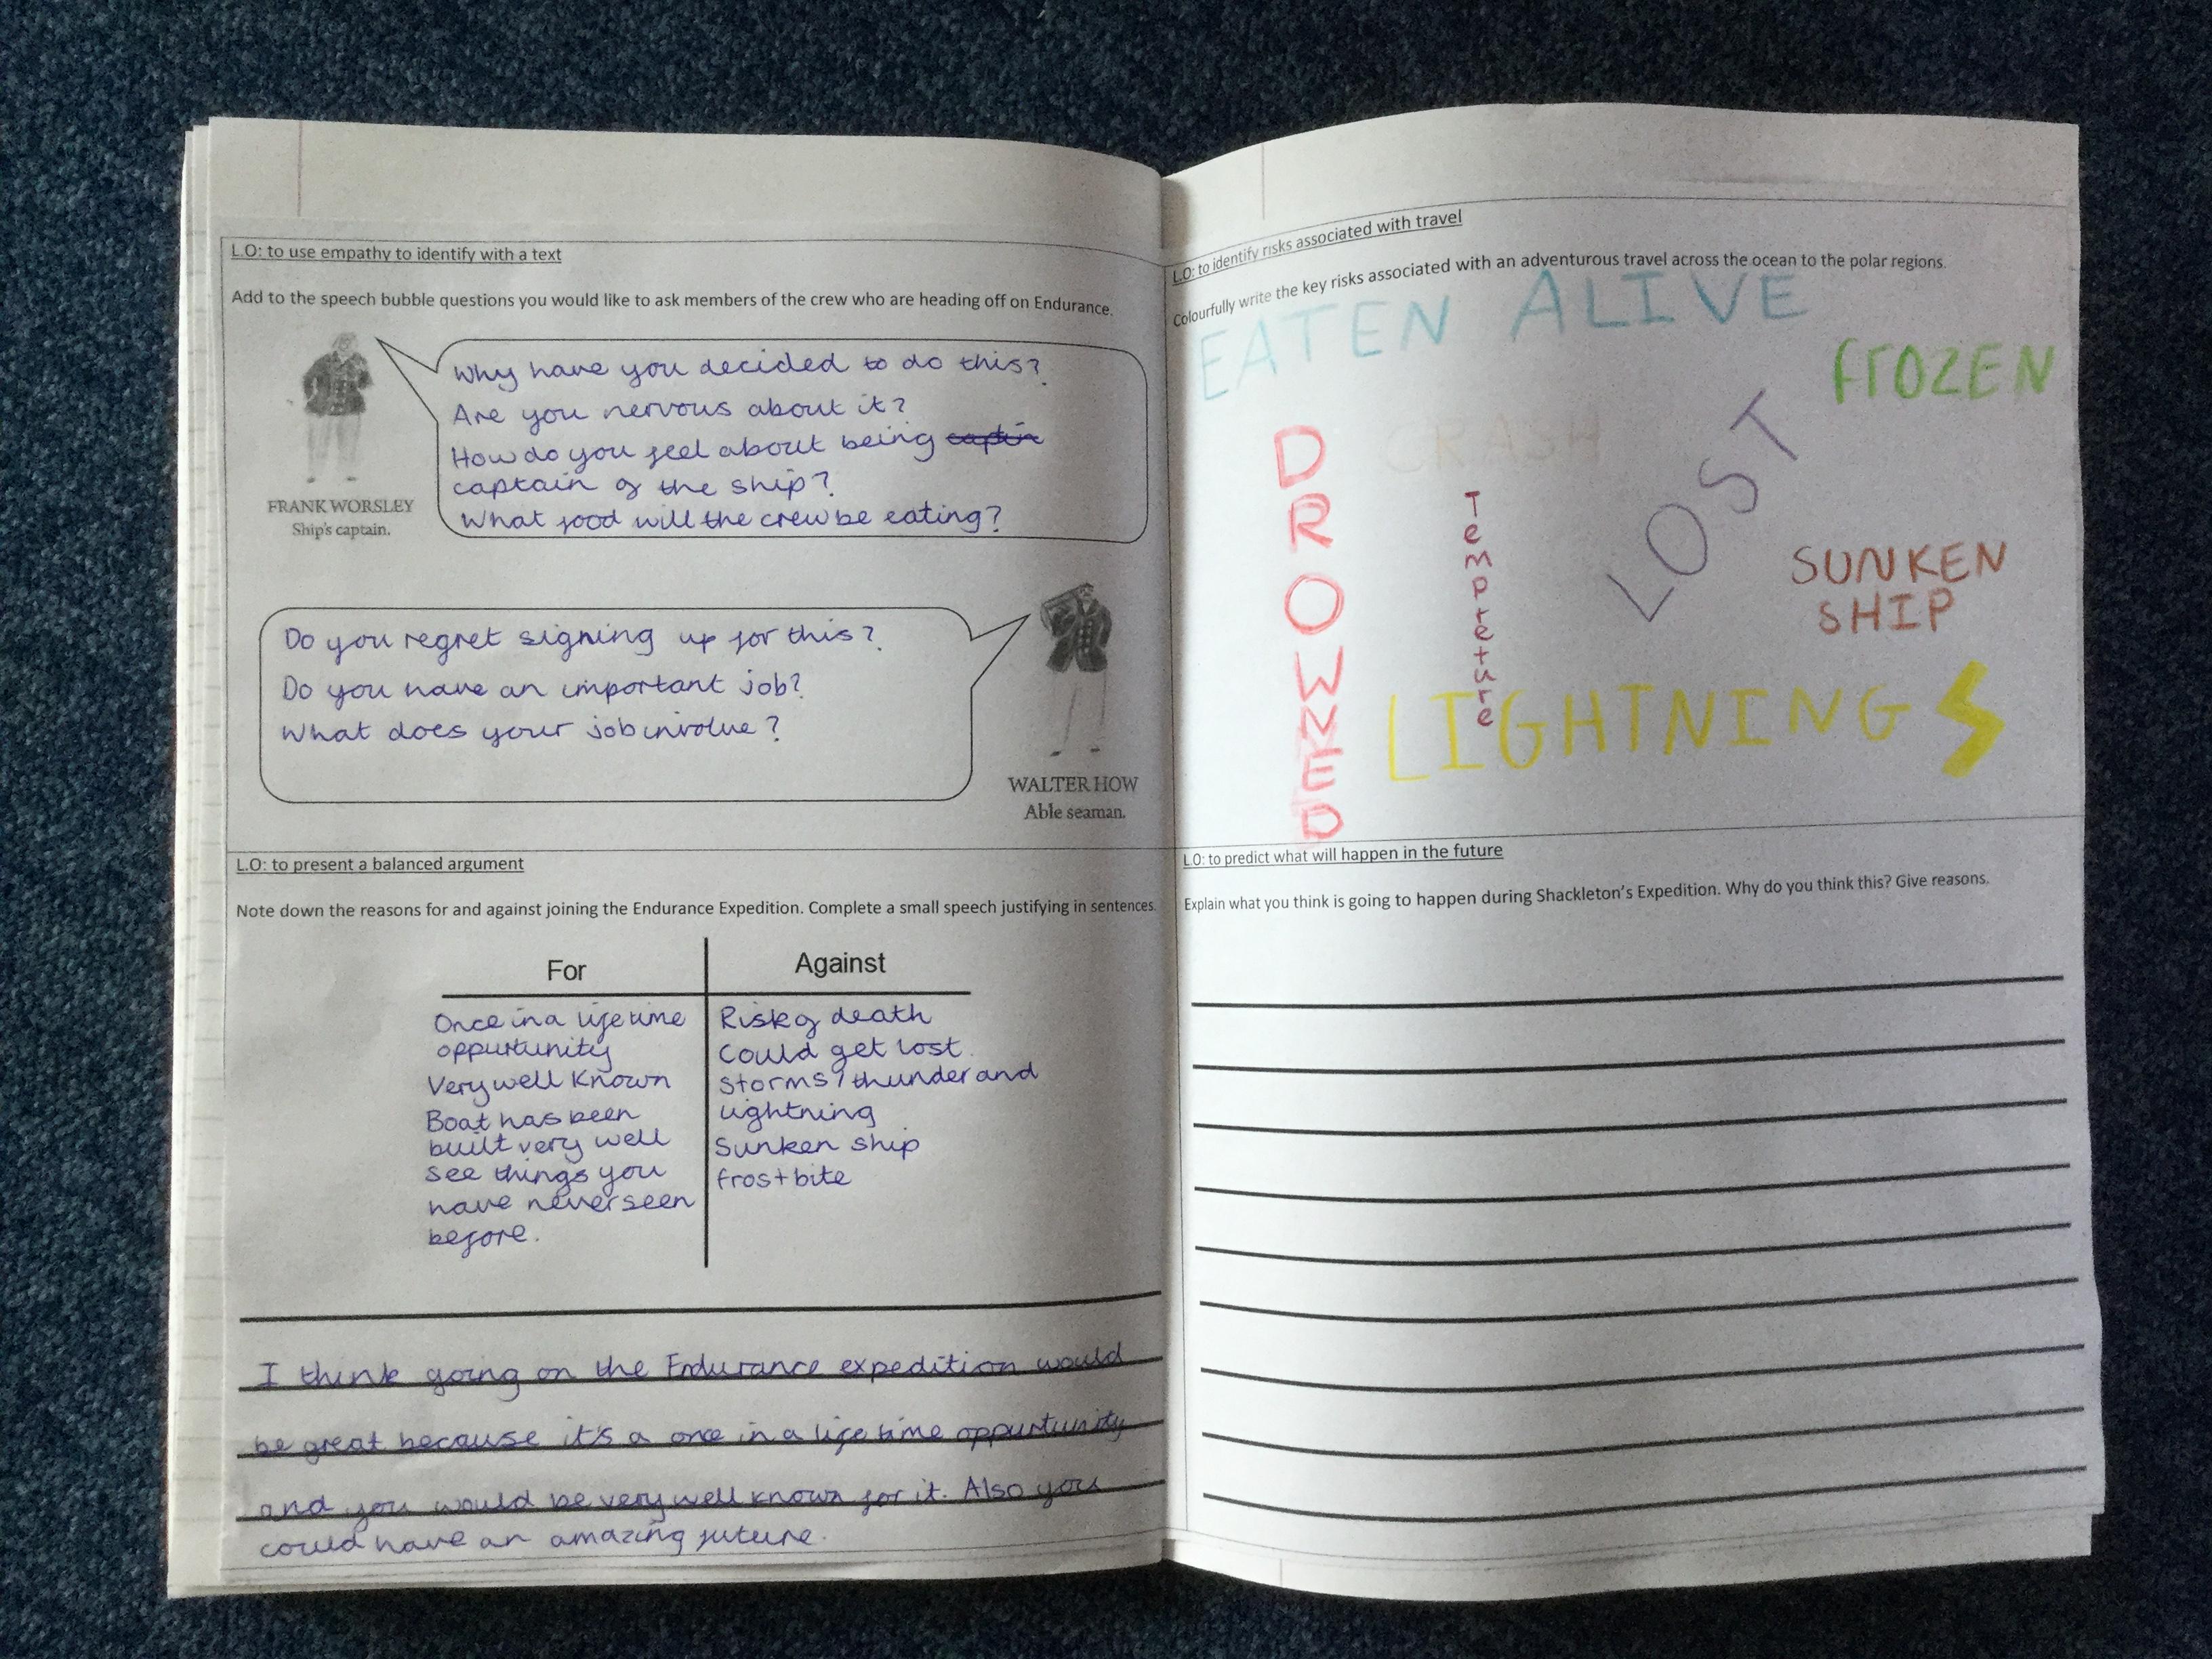 L.O: to use empathy to identify with a text
Add to the speech bubble questions you would like to ask members of the crew who are heading off on Endurance.
Why have you decided to do this?
Are you nervous about it?
How do you feel about being captin
captain of the ship?
What food will the crew be eating?
FRANK WORSLEY
Ship's captain.
Do you regret signing up for this?
Do you have an important job?
What does your job involve?
WALTER HOW
Able seaman.
L.O: to present a balanced argument
Note down the reasons for and against joining the Endurance Expedition. Complete a small speech justifying in sentences.
For
Once in a life time
oppurtunity
Very well known
Boat has been
built very well
see things you
have never seen
before.
Against
Risk of death
Could get lost.
Storms / thunder and
lightning
Sunken ship
frostbite
I think going on the Endurance expedition would
be great because it's a once in a life time oppurtunity
and you would be very well known for it. Also you
could have an amazing future.
L.O: to identify risks associated with travel
Colourfully write the key risks associated with an adventurous travel across the ocean to the polar regions.
EATEN ALIVE
FROZEN
DROWNED
CRASH
Tempreture
LOST
SUNKEN
SHIP
LIGHTNING
L.O: to predict what will happen in the future
Explain what you think is going to happen during Shackleton's Expedition. Why do you think this? Give reasons.